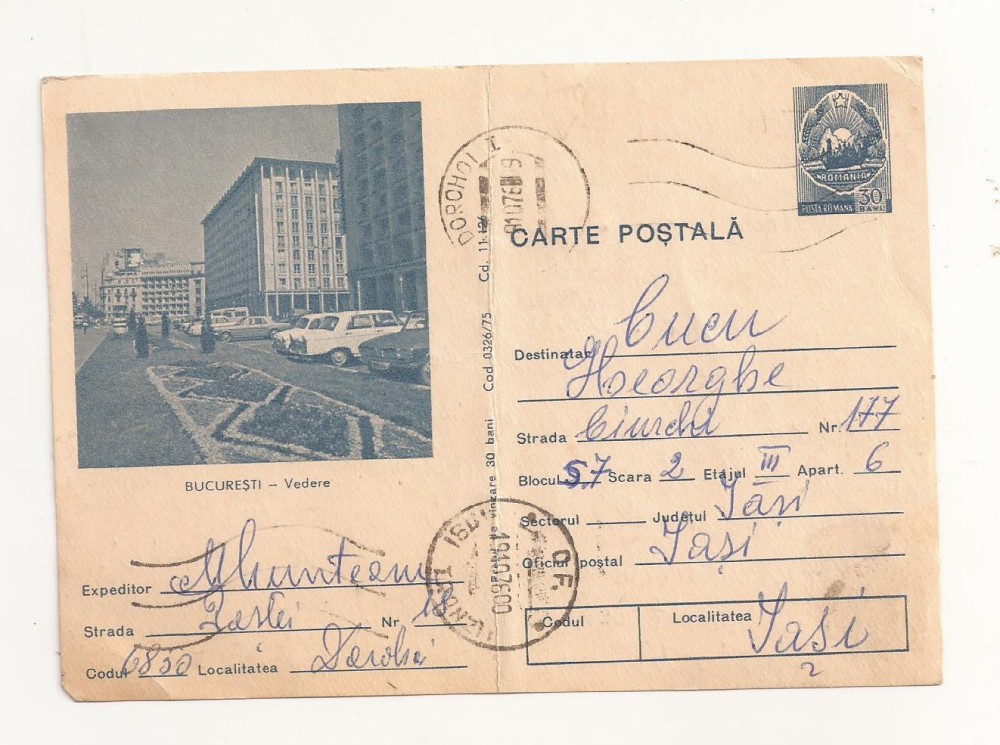 BUCUREȘTI – Vedere
Expeditor Munteanu
Strada Nr. 18
Codul 6850 Localitatea Dorohoi
Cd. 11.126 Cod 0326/75 Prețul de vînzare 30 bani
DOROHOI 1
ROMANIA
POSTA ROMANA 30 BANI
CARTE POȘTALĂ
Destinatar Cucu
Gheorghe
Strada Ciurchi Nr. 177
Blocul 57 Scara 2 Etajul III Apart. 6
Sectorul Județul Iași
Oficiul poștal Iași
Codul Localitatea Iași
2
IAȘI O.F.